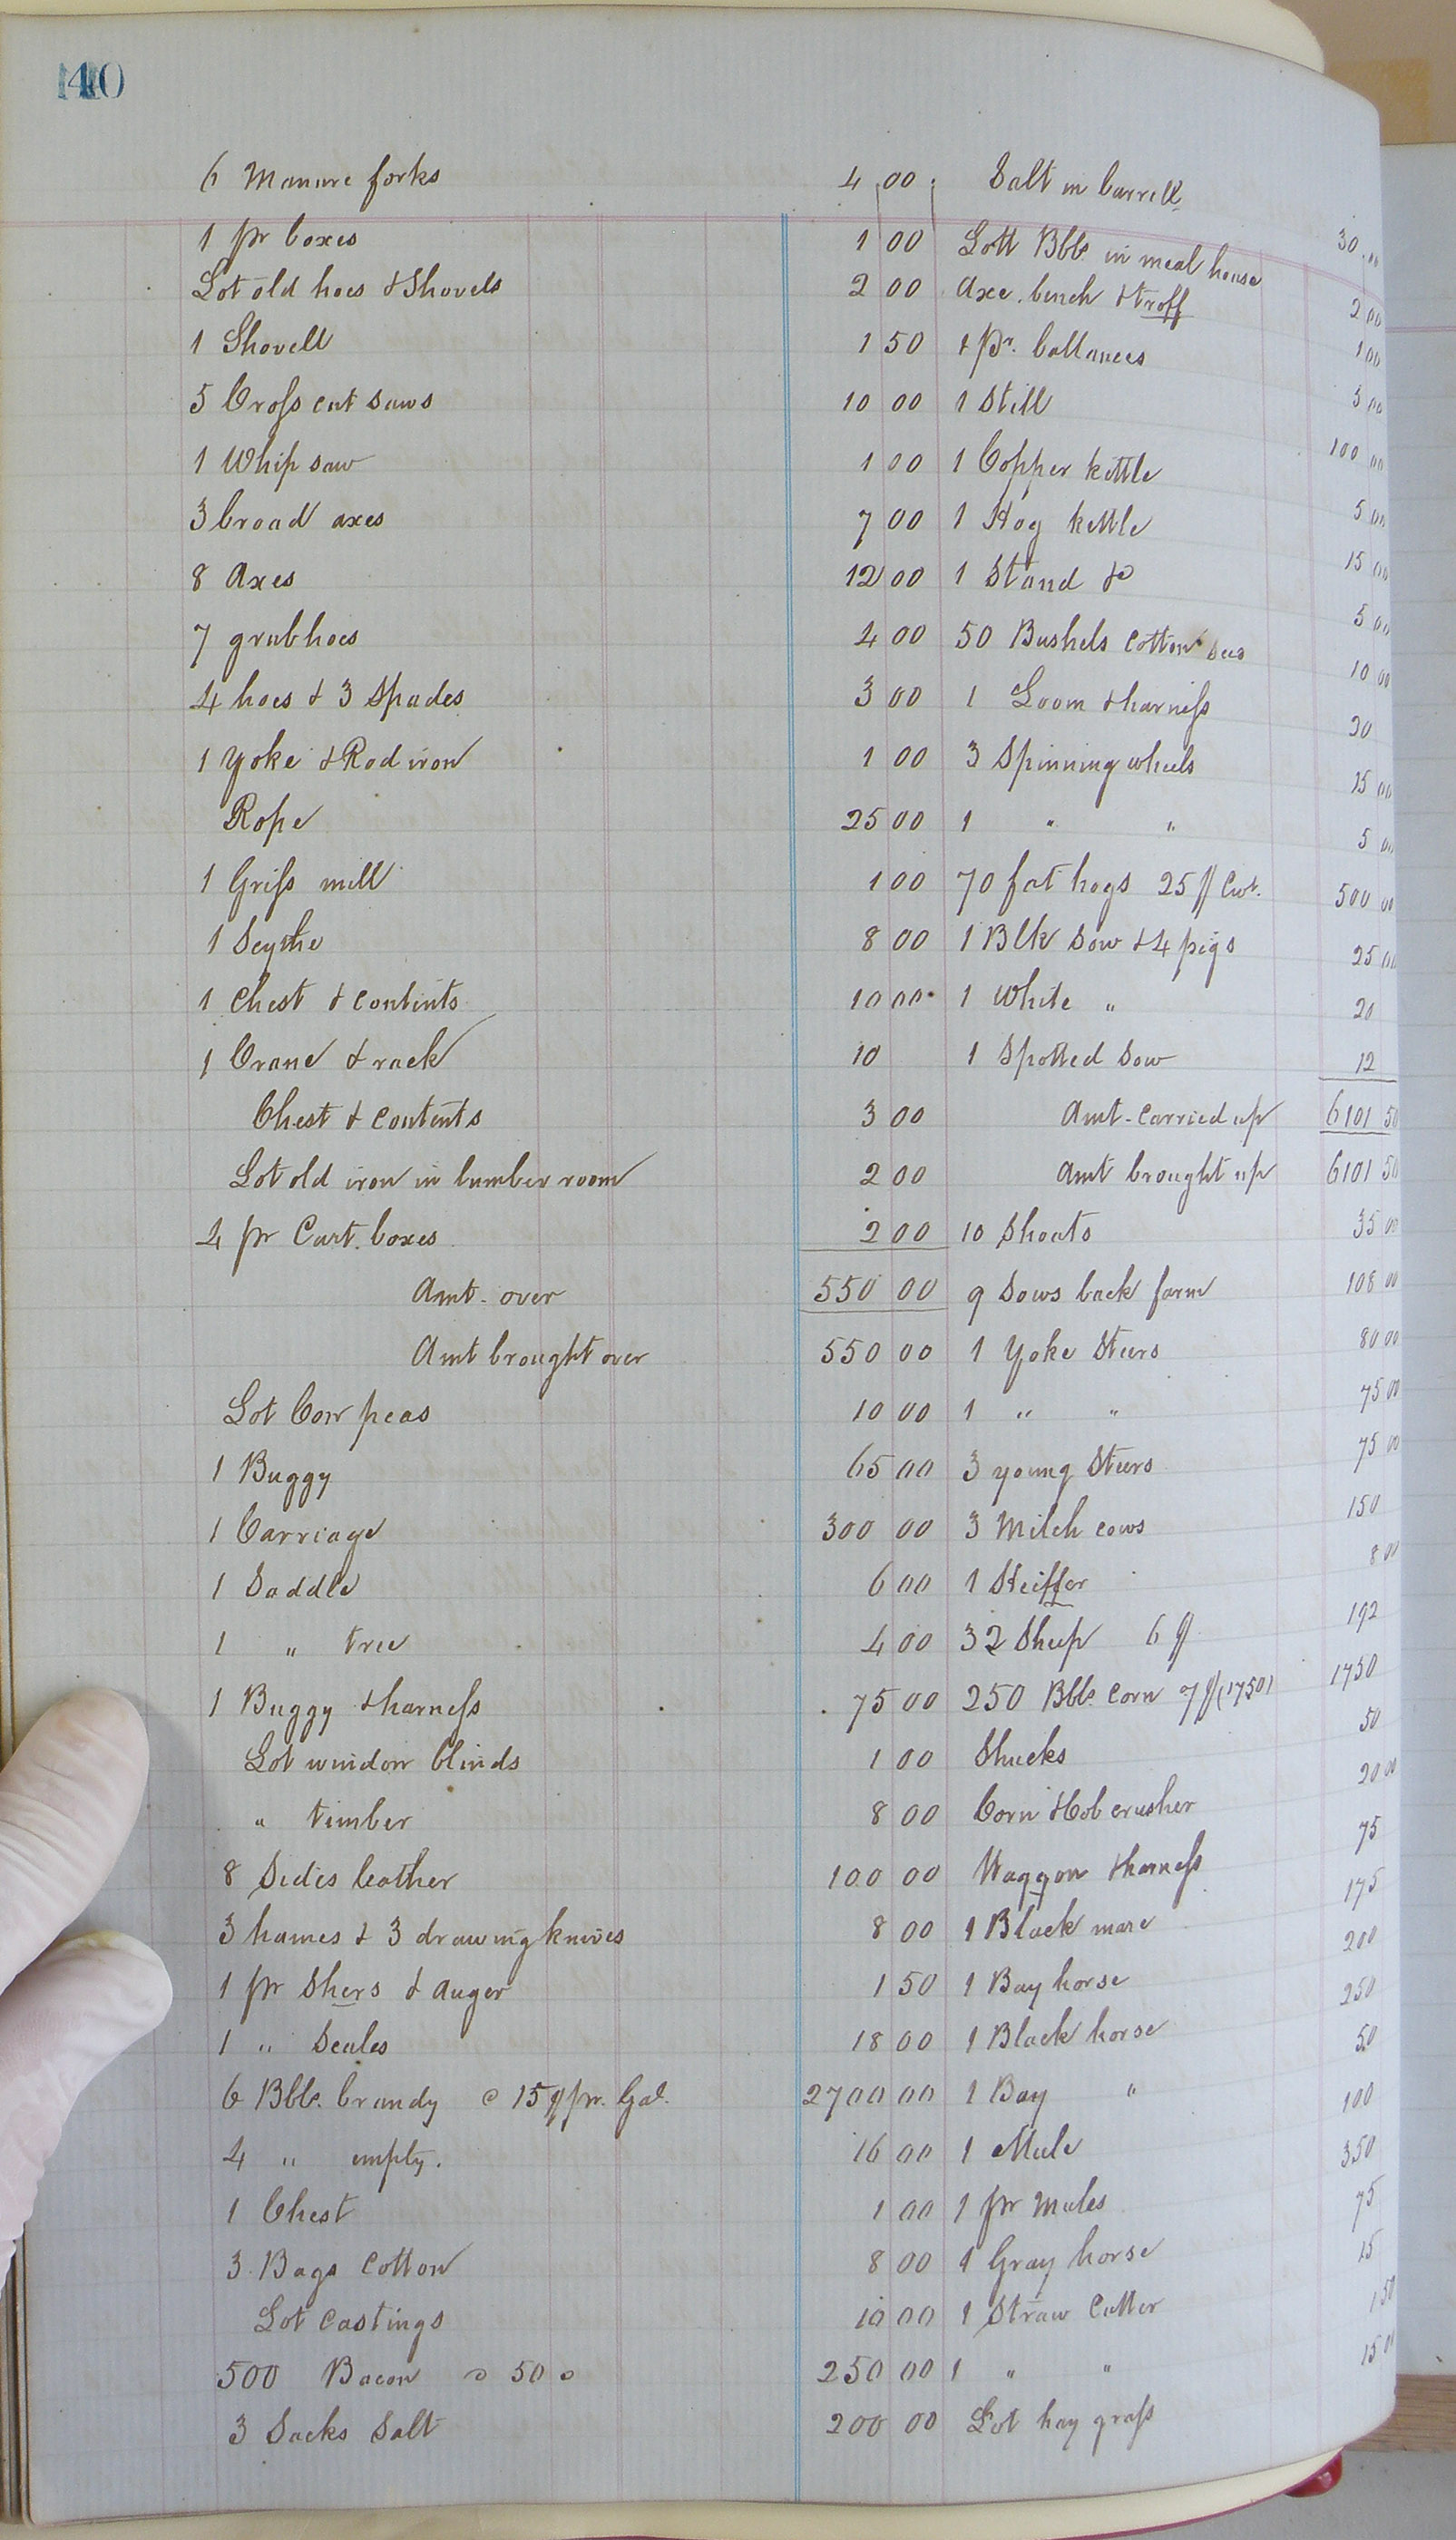 140
6 Manure forks 4 00
1 pr boxes 1 00
Lot old hoes & Shovels 2 00
1 Shovell 1 50
5 Cross cut saws 10 00
1 Whip saw 1 00
3 broad axes 7 00
8 Axes 12 00
7 grubhoes 4 00
4 hoes & 3 Spades 3 00
1 Yoke & Rod iron 1 00
Rope 25 00
1 Griss mill 1 00
1 Scythe 8 00
1 Chest & Contents 10 00
1 Crane & rack 10
Chest & contents 3 00
Lot old iron in lumber room 2 00
4 pr Cart. boxes 2 00
Amt. over 550 00
Amt brought over 550 00
Lot Cow peas 10 00
1 Buggy 65 00
1 Carriage 300 00
1 Saddle 6 00
1 " tree 4 00
1 Buggy & harness 75 00
Lot window blinds 1 00
" timber 8 00
8 Sides leather 100 00
3 hames & 3 drawing knives 8 00
1 pr Shers & auger 1 50
1 " Scales 18 00
6 Bbls. brandy @ 15$ pr. Gal. 2700 00
4 " empty. 16 00
1 Chest 1 00
3 Bags Cotton 8 00
Lot Castings 10 00
500 Bacon @ 50 c 250 00
3 Sacks Salt 200 00
Salt in barrell 30 00
Lott Bbls in meal house 2 00
Axe. bench & troff 1 00
1 Pr. ballances 5 00
1 Still 100 00
1 Copper kettle 5 00
1 Hog kettle 15 00
1 Stand do 5 00
50 Bushels Cotton 10 00
1 Loom & harness 20
3 Spinning wheels 15 00
1 " " 5 00
70 fat hogs 25 $ Cwt. 500 00
1 Blk Sow & 4 pigs 25 00
1 White " 20
1 Spotted Sow 12
Amt. Carried up 6101 50
Amt brought up 6101 50
10 Shoats 35 00
9 Sows back farm 108 00
1 Yoke Steers 80 00
1 " " 75 00
3 young Steers 75 00
3 Milch cows 150
1 Heiffer 8 00
32 Sheep 6 $ 192
250 Bbls. Corn 7 $ (1750) 1750
Shucks 50
Corn & Cob crusher 20 00
Waggon & harness 75
1 Black mare 175
1 Bay horse 200
1 Black horse 250
1 Bay " 50
1 Mule 100
1 pr Mules 350
1 Gray horse 75
1 Straw Cutter 15
1 " " 1 50
Lot hay grass 15 00